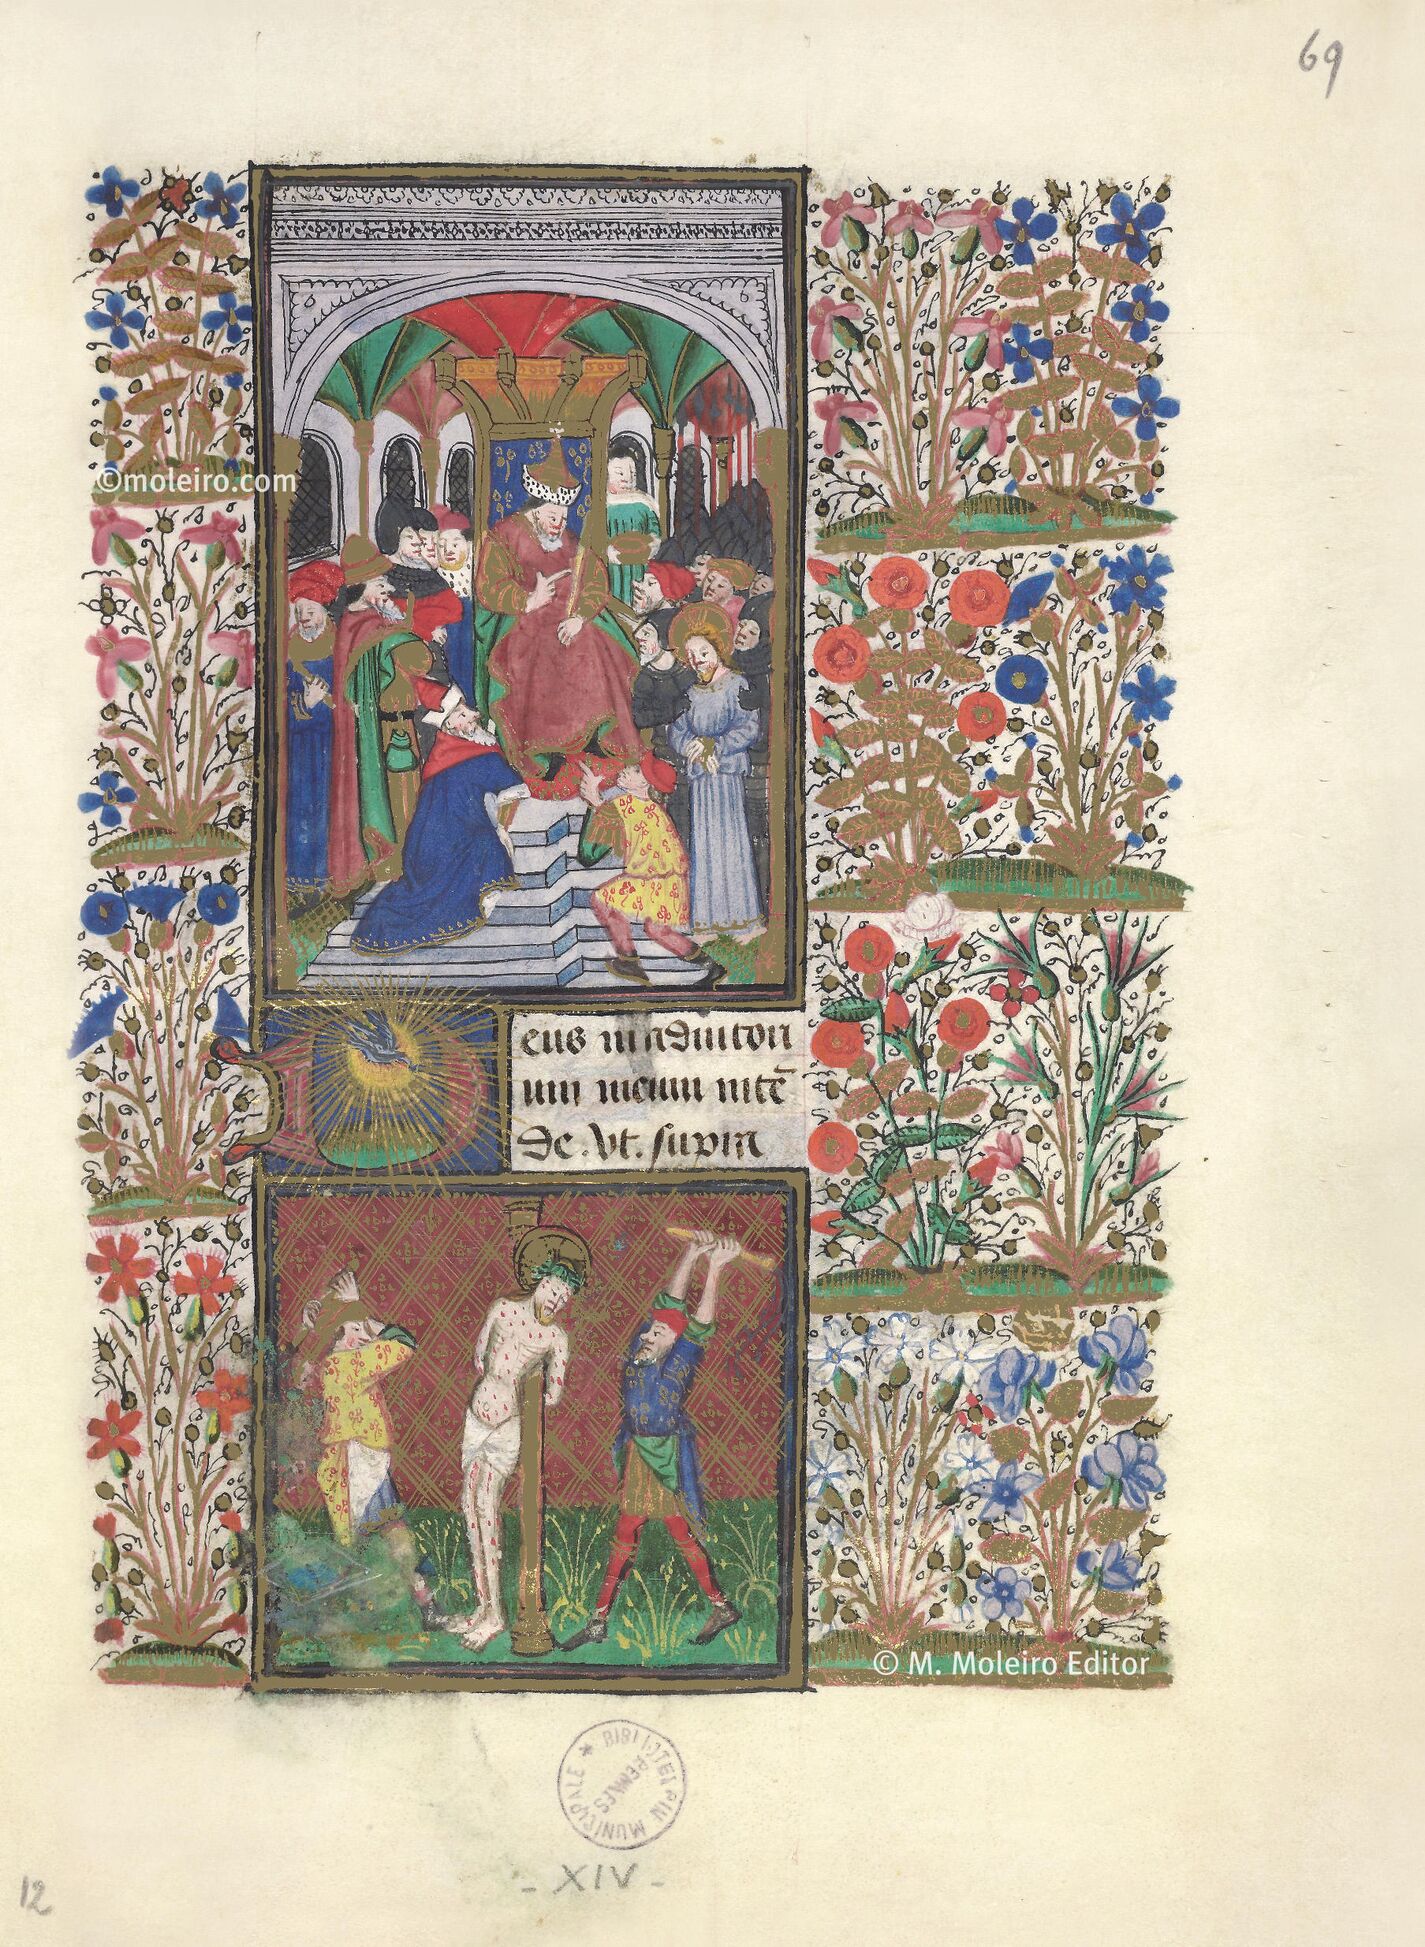 69
©moleiro.com
eus in adiutori
um meum intē
de. Vt. supra
© M. Moleiro Editor
BIBLIOTEH MUNICIPALE
RENNES
- XIV -
12